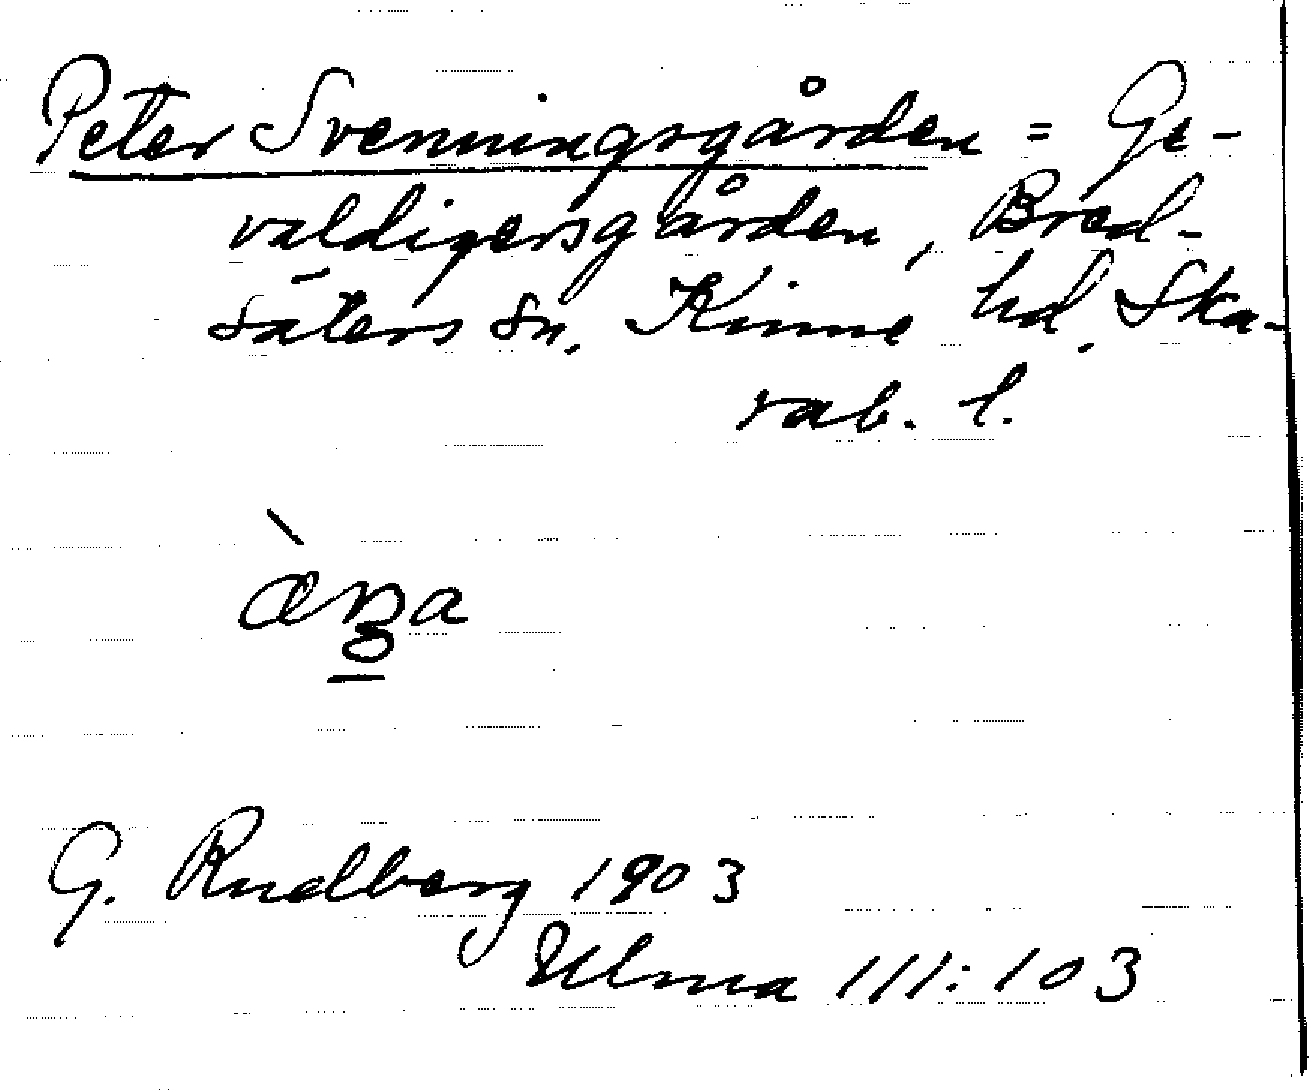 Peter Svenningsgården = Ge-
valdigersgården, Bred-
säters sn, Kinne hd, Ska-
rab. l.
G. Rudberg 1903
Ulma 111:103